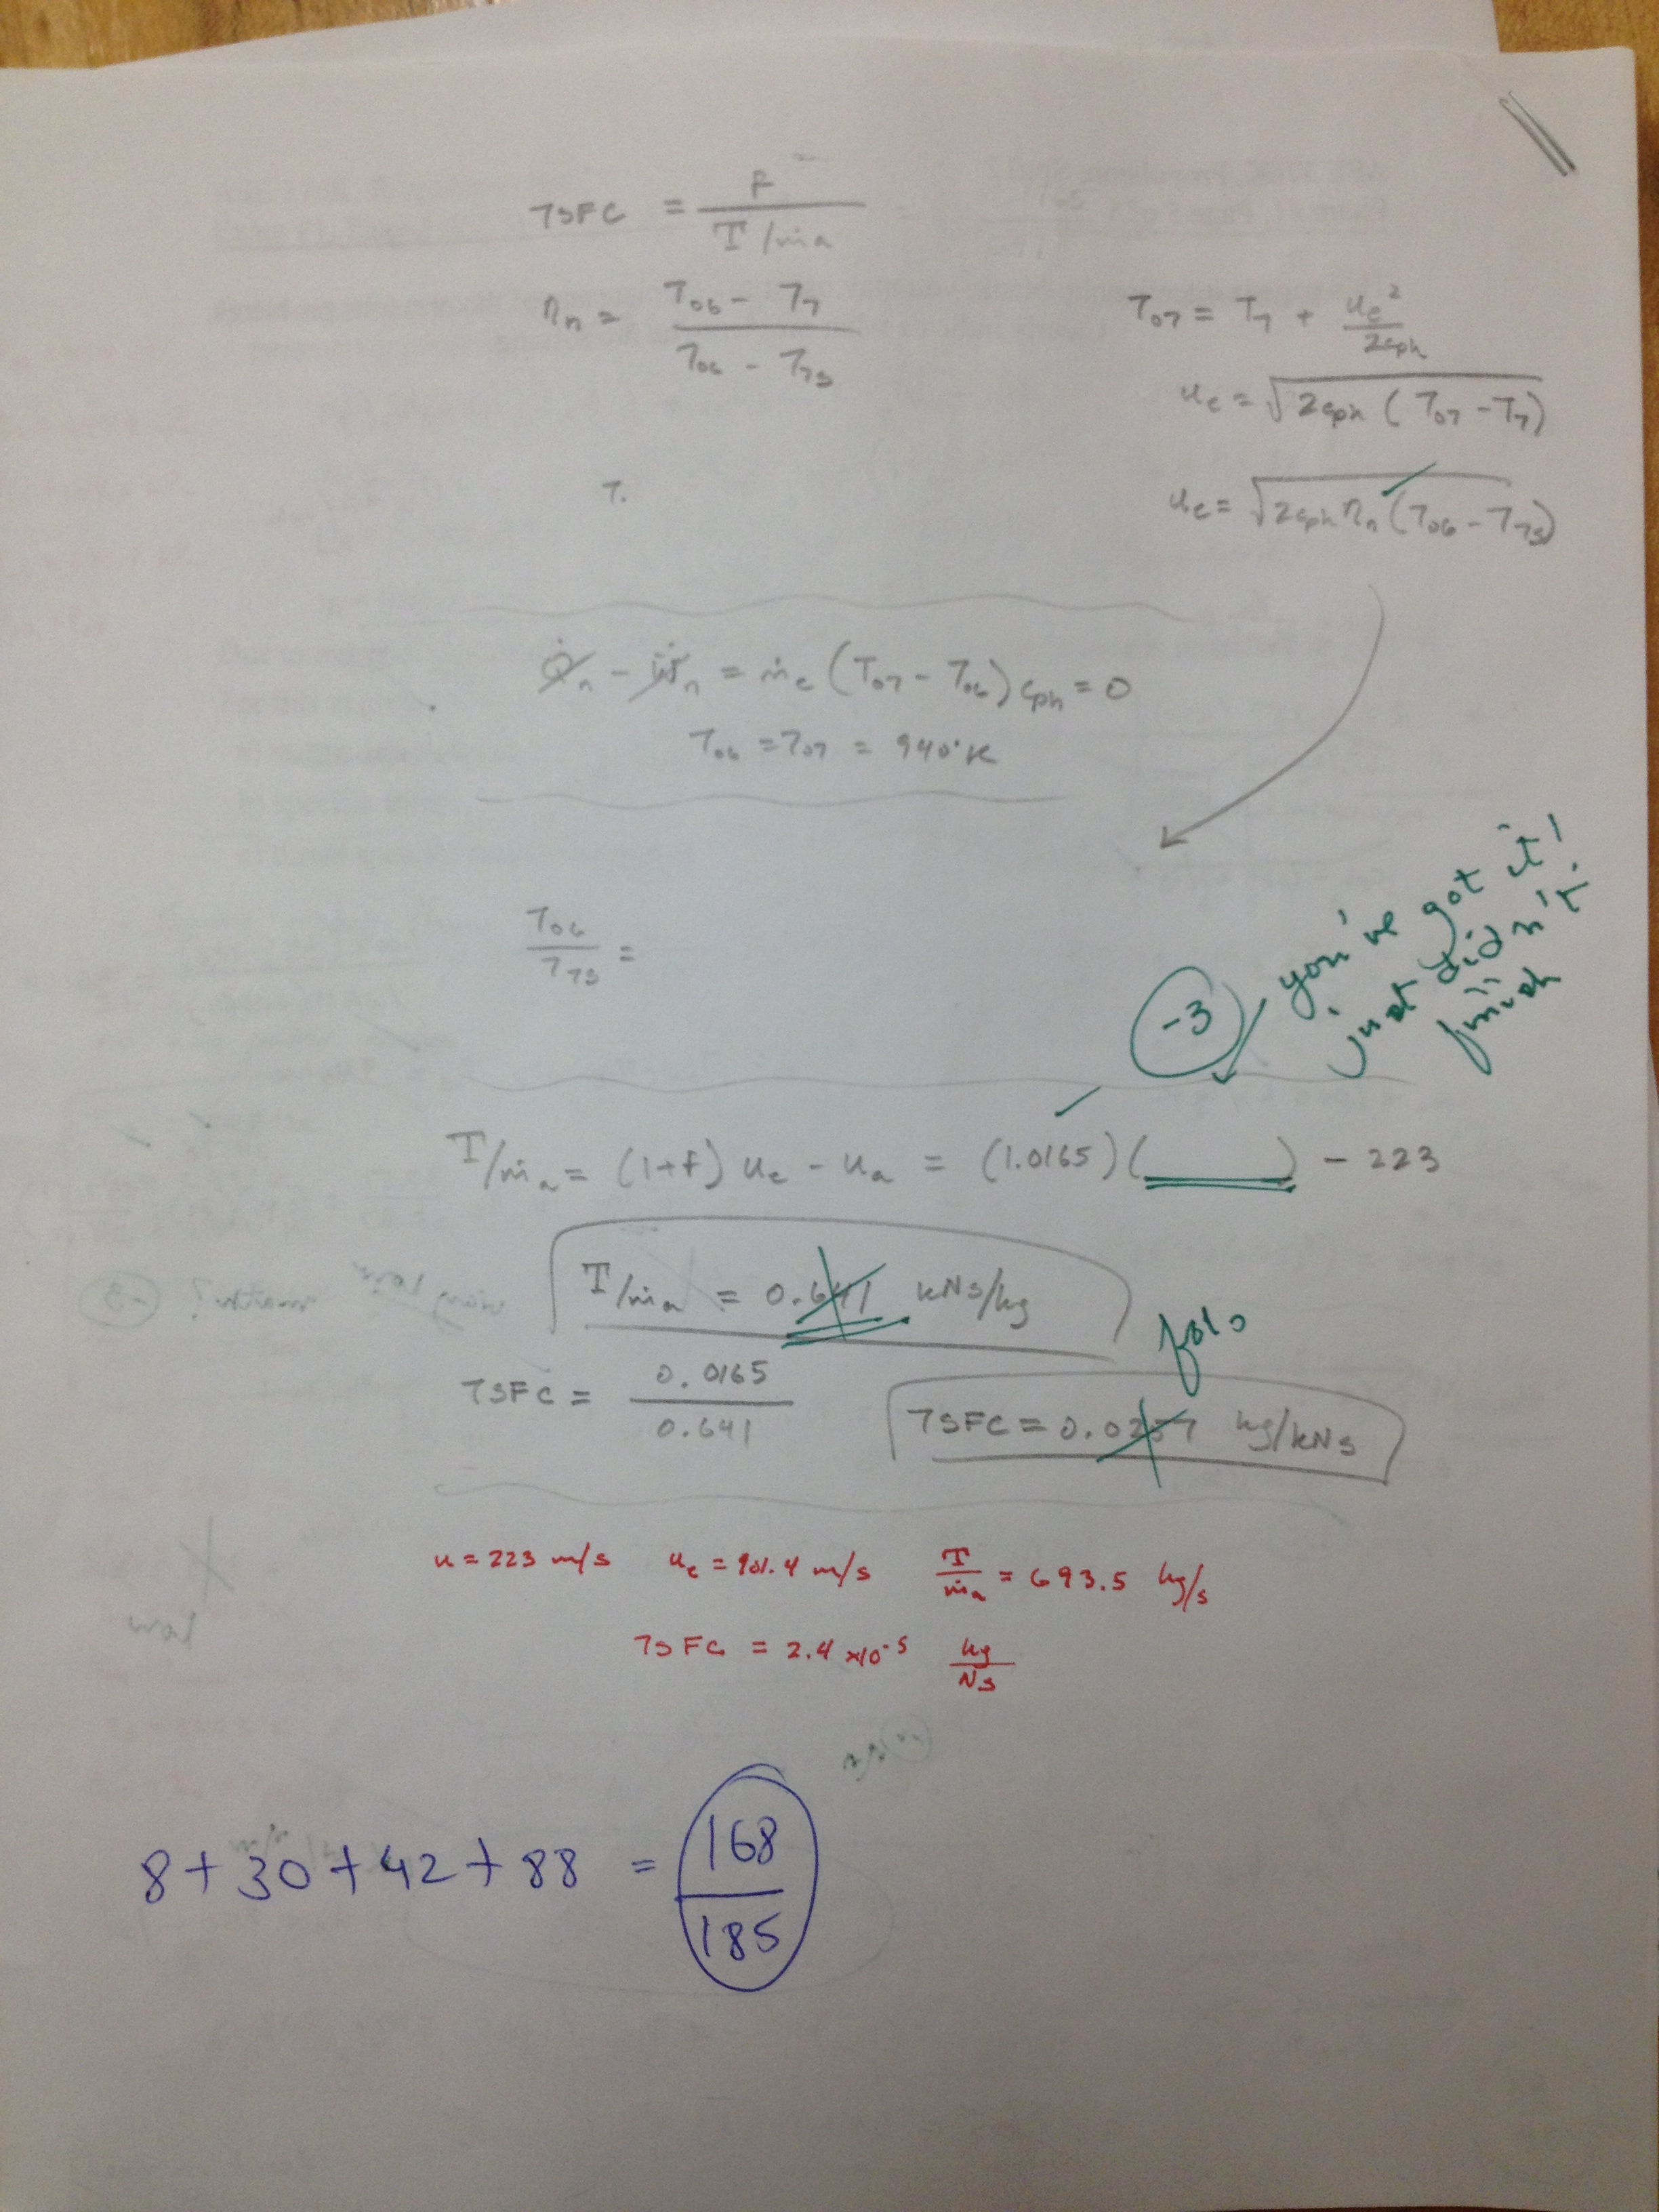 TSFC = f / (T/ṁa)
ηn = (T06 - T7) / (T06 - T7s)
T07 = T7 + ue² / 2cph
ue = √2cph (T07 - T7)
T.
ue = √2cph ηn (T06 - T7s)
Q̇n - Ẇn = ṁe (T07 - T06) cph = 0
T06 = T07 = 940°K
T06 / T7s =
-3
you've got it!
just didn't
finish
T/ṁa = (1+f) ue - ua = (1.0165)( ) - 223
T/ṁa = 0.641 kNs/kg
TSFC = 0.0165 / 0.641
TSFC = 0.0257 kg/kNs
u = 223 m/s ue = 901.4 m/s T/ṁa = 693.5 kg/s
TSFC = 2.4 x10^-5 kg/Ns
8 + 30 + 42 + 88 = 168/185